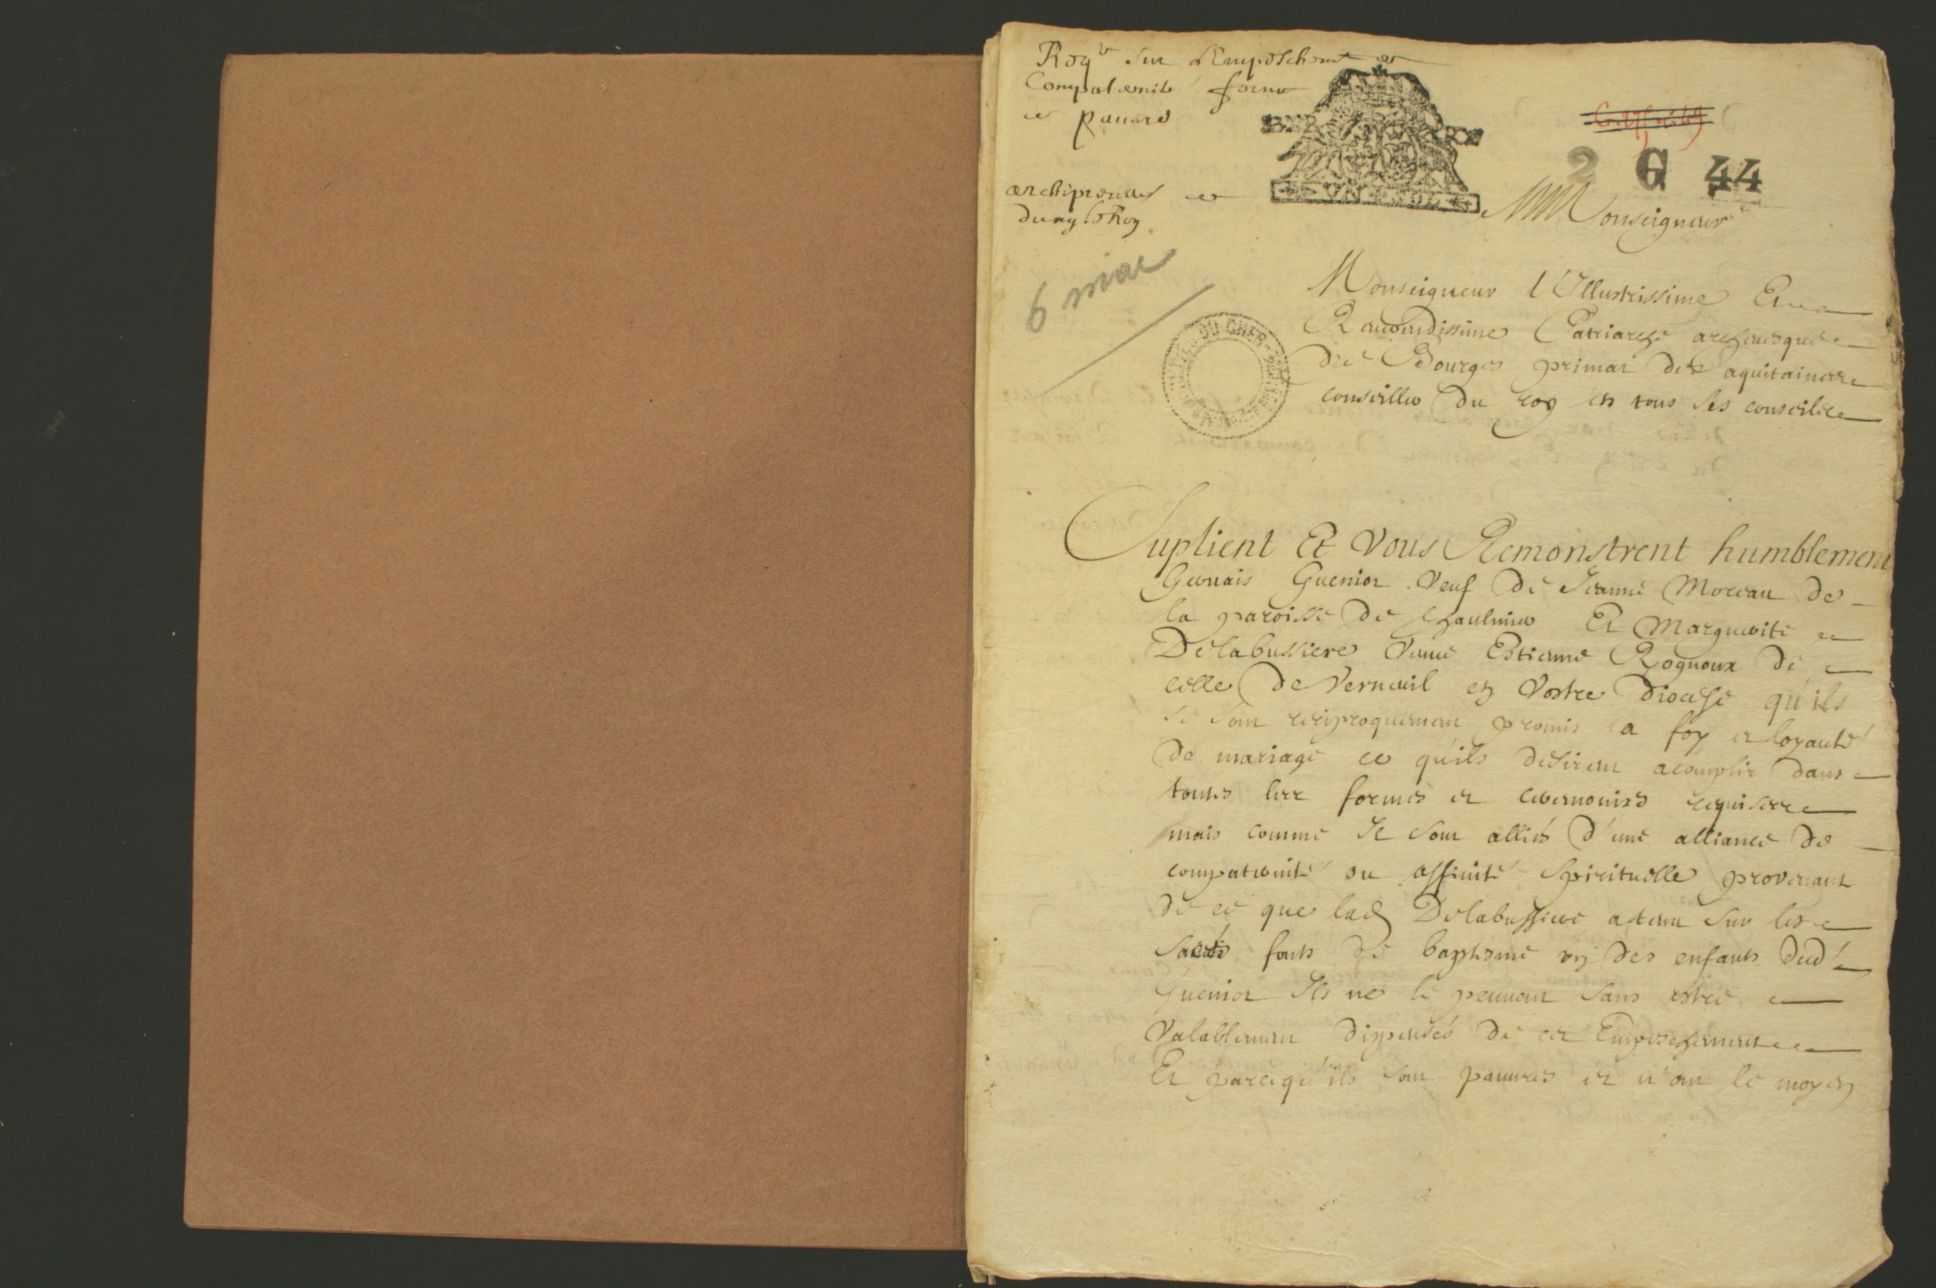 Reqte sur L'Empeschemt de
Compaternité forme
de pauure
archipresueré de
Dun le Roy
2 G 44
6 mai
Monseigneur
Monseigneur l'Illustrissime Et
Reuerendissime Patriarche archeuesque
de Bourges primat des aquitaines
conseiller du roy en tous ses conseils
ARCHIVES DU CHER
Suplient Et Vous Remonstrent humblement
Geruais Guenior Veuf de Jeanne Moreau de
la paroisse de Chaulmier Et Marguerite
Delabussiere Veuue Estienne Rognoux de
celle de Verneuil en Vostre Diocese qu'ils
se sont reciproquement promis la foy et loyauté
de mariage ce qu'ils desirent acomplir dans
toutes les formes et ceremonies requises
mais comme Il sont alliés d'une alliance de
compaternité ou affinité spirituelle provenant
de ce que lad Delabussiere a tenu sur les
sacrés fonts de baptsme vn des enfants dud
Guenior Ils ne le peuuent sans estre
Valablement dispensés de cet Empeschement
Et parcequ'ils sont pauures et n'ont le moyen